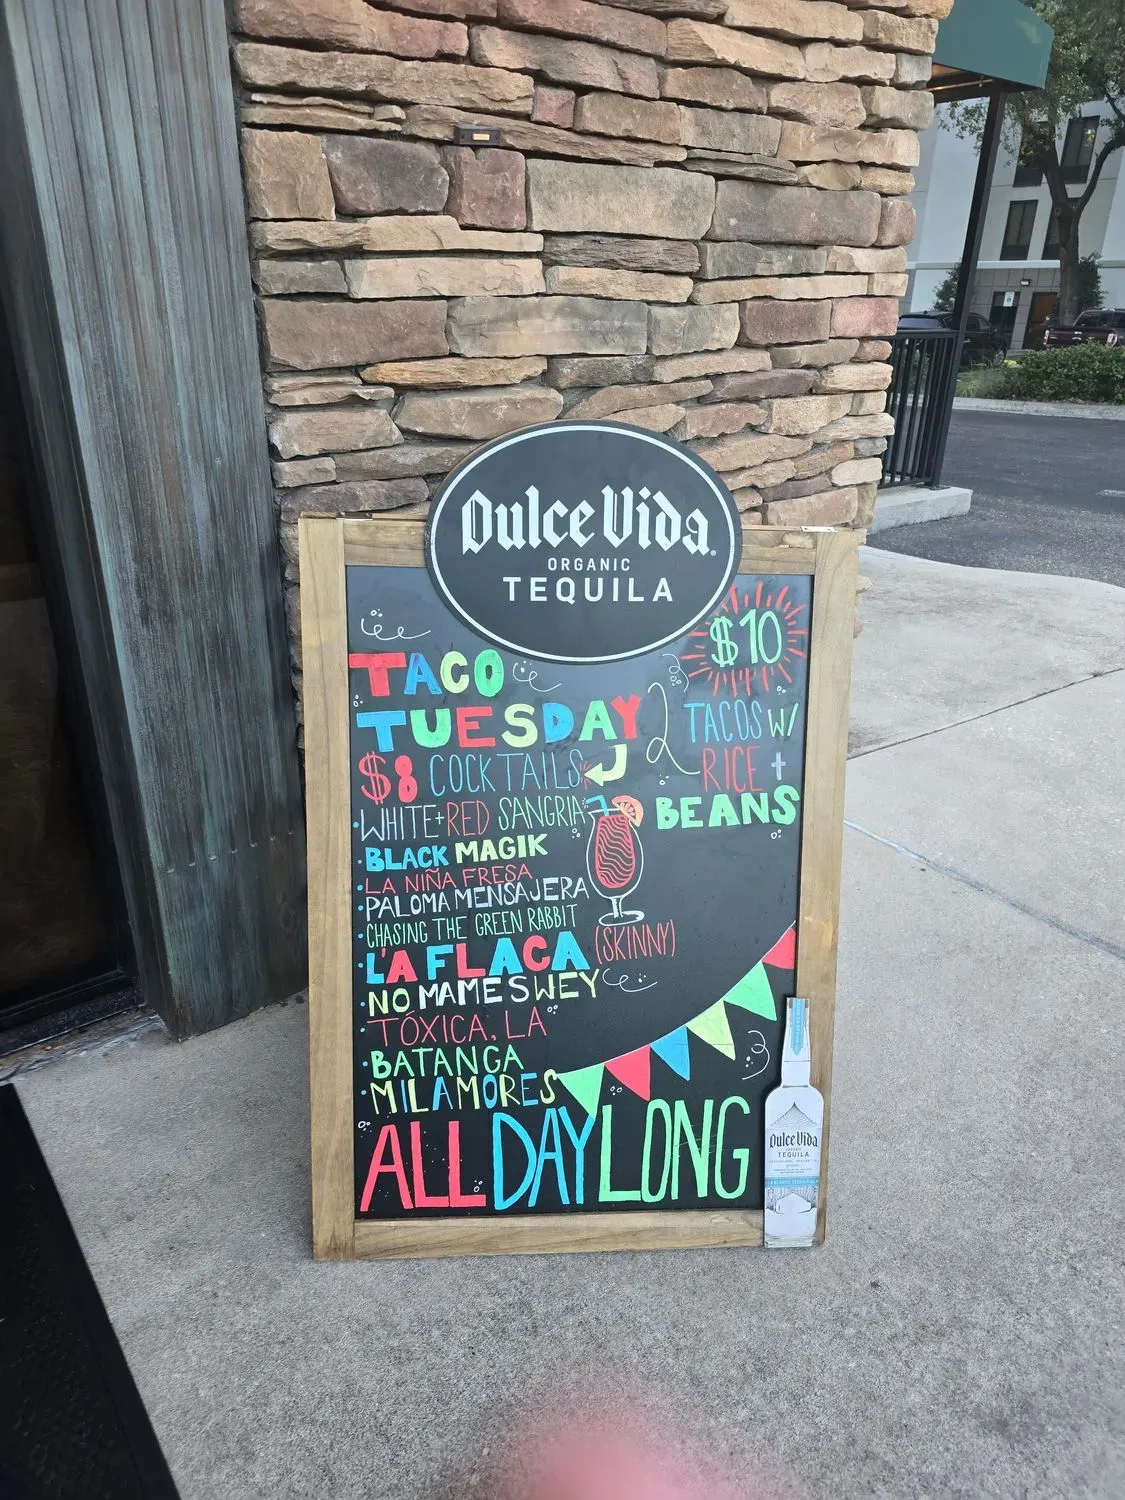 Dulce Vida
ORGANIC
TEQUILA
TACO
TUESDAY
$8 COCKTAILS
• WHITE + RED SANGRIA
• BLACK MAGIK
• LA NIÑA FRESA
• PALOMA MENSAJERA
• CHASING THE GREEN RABBIT
• L'A FLACA (SKINNY)
• NO MAMES WEY
• TÓXICA, LA
• BATANGA
• MILAMORES
ALL DAY LONG
$10
2 TACOS W/
RICE +
BEANS
Dulce Vida
ORGANIC
TEQUILA